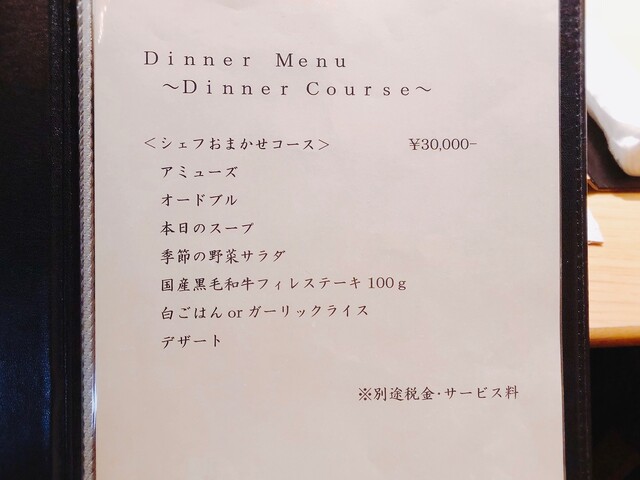 Dinner Menu
～Dinner Course～
＜シェフおまかせコース＞ ¥30,000-
アミューズ
オードブル
本日のスープ
季節の野菜サラダ
国産黒毛和牛フィレステーキ 100g
白ごはん or ガーリックライス
デザート
※別途税金･サービス料